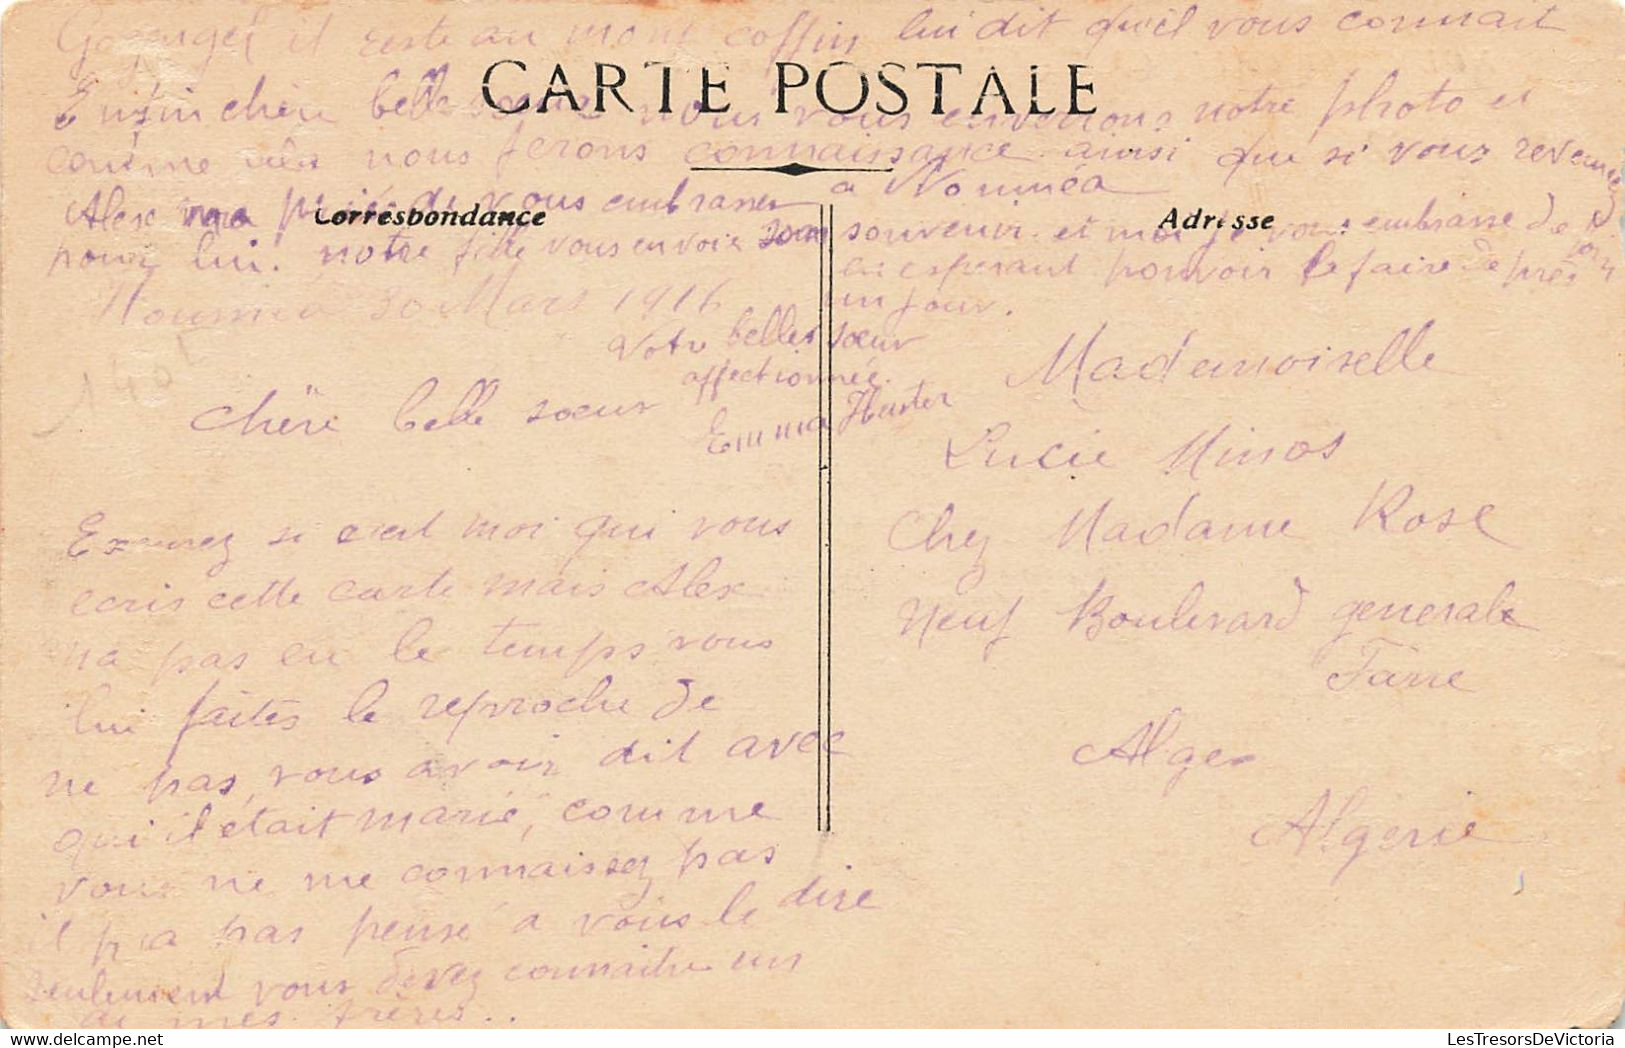 Nouméa 30 Mars 1916
Chère belle sœur
Excusez si c'est moi qui vous
ecris cette carte mais Alex
na pas eu le temps vous
lui faites le reproche de
ne pas vous avoir dit avec
qui il était marié, comme
vous ne me connaissez pas
il n'a pas pensé a vous le dire
seulement vous devez connaitre un
de mes frères..
il reste au mont coffin lui dit qu'il vous connait
CARTE POSTALE
Enfin chère belle sœur nous vous enverrons notre photo et
comme nous ferons connaissance ainsi que si vous revenez
a Nouméa
Alex vous embrasser
Correspondance
Adresse
pour lui. notre fille vous envoie son souvenir et moi je vous embrasse de loin
en esperant pouvoir le faire de près
un jour.
Votre belle sœur
affectionnée.
Emma
Mademoiselle
Lucie Minos
Chez Madame Rose
Neuf Boulevard generale
Farre
Alger
Algerie
LesTresorsDeVictoria